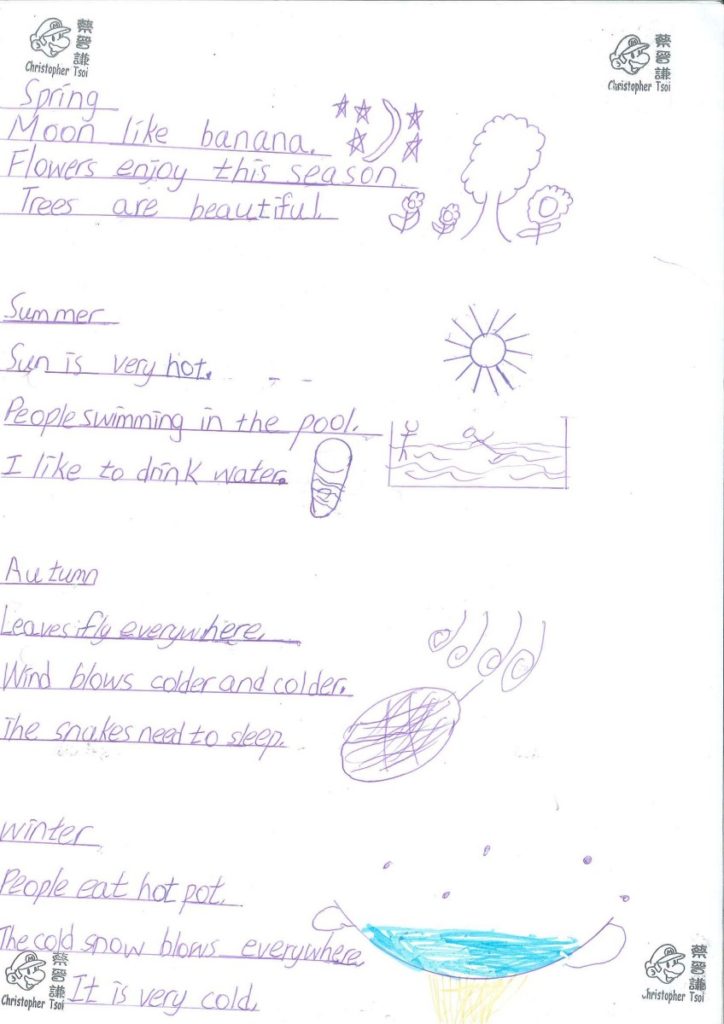 蔡晉謙
Christopher Tsoi
蔡晉謙
Christopher Tsoi
Spring
Moon like banana.
Flowers enjoy this season.
Trees are beautiful.
Summer
Sun is very hot.
People swimming in the pool.
I like to drink water.
Autumn
Leaves fly everywhere.
Wind blows colder and colder.
The snakes need to sleep.
winter
People eat hot pot.
The cold snow blows everywhere.
It is very cold.
蔡晉謙
Christopher Tsoi
蔡晉謙
Christopher Tsoi